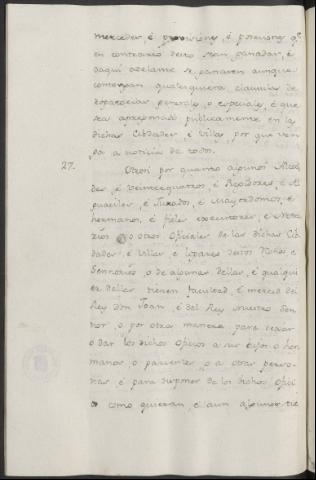 mercedes, é provisiones, é pensiones qe.
en contrario desto sean ganadas, é
daqui adelante se ganaren aunque
contengan qualesquiera clausulas de
derogacias generales, o especiales, é que
sea apregonado publicamente en las
dichas Cibdades é Villas, por que ven
ga a noticia de todos.
27. Otrosi por quanto algunos Alcal
des, é Veintequatros, é Regidores, é Al
guaciles, é Jurados, é Mayordomos, é
hermanos, é fieles executores, é Nota
rios, o otros Oficiales de las dichas Cib
dades, é Villas, é lugares destos Reinos, é
Sennorios, o de algunas dellas, é qualqui
er dellas tienen facultad, é merced del
Rey don Joan, é del Rey nuestro Sen
nor, o por otra manera para dexar
o dar los dichos oficios a sus fijos, o her
manos, o parientes, o a otras perso
nas, é para disponer de los dichos Ofici
os como quieran, é aun algunos tie